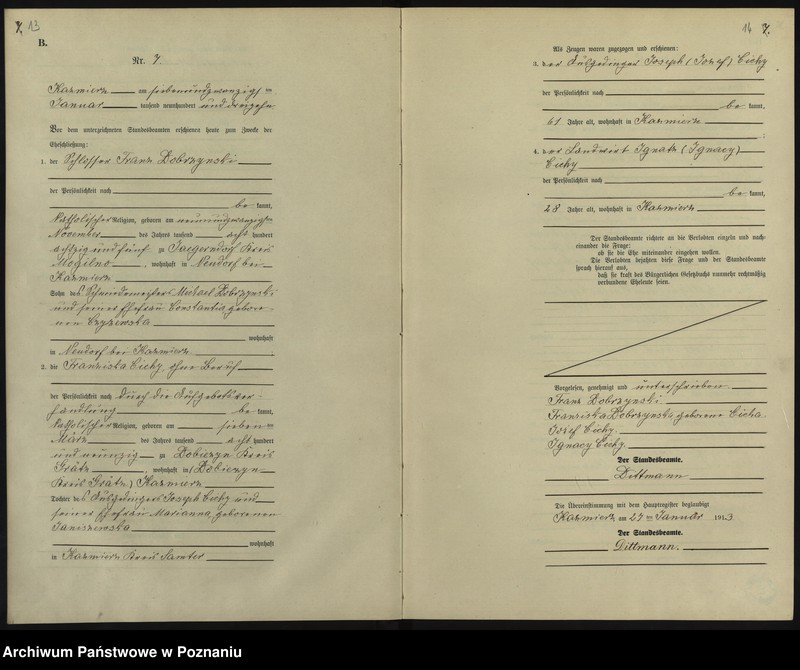 7. 13
B.
Nr. 7.
Kazmierz am siebenundzwanzigsten
Januar tausend neunhundert und dreizehn
Vor dem unterzeichneten Standesbeamten erschienen heute zum Zwecke der
Eheschließung:
1. der Schlosser Franz Dobrzynski
der Persönlichkeit nach
be kannt,
katholischer Religion, geboren am neunundzwanzigsten
November des Jahres tausend acht hundert
achtzig und fünf zu Jaegerndorf Kreis
Mogilno, wohnhaft in Neudorf bei
Kazmierz
Sohn des Schmiedemeisters Michael Dobrzynski
und seiner Ehefrau Constantia gebore-
nen Czyzewska
wohnhaft
in Neudorf bei Kazmierz.
2. die Franziska Cichy, ohne Beruf
der Persönlichkeit nach durch die Aufgebotsver-
handlung be kannt,
katholischer Religion, geboren am sieben ten
März des Jahres tausend acht hundert
und neunzig zu Dobieżyn Kreis
Grätz, wohnhaft in (Dobieżyn
Kreis Grätz) Kazmierz
Tochter des Joseph Cichy und
seiner Ehefrau Marianna geborenen
Janiszewska
wohnhaft
in Kazmierz Kreis Samter
14 7.
Als Zeugen waren zugezogen und erschienen:
3. der Joseph (Jozef) Cichy
der Persönlichkeit nach
be kannt,
61 Jahre alt, wohnhaft in Kazmierz
;
4. der Landwirt Ignatz (Ignacy)
Cichy
der Persönlichkeit nach
be kannt,
28 Jahre alt, wohnhaft in Kazmierz
Der Standesbeamte richtete an die Verlobten einzeln und nach-
einander die Frage:
ob sie die Ehe miteinander eingehen wollen.
Die Verlobten bejahten diese Frage und der Standesbeamte
sprach hierauf aus,
daß sie kraft des Bürgerlichen Gesetzbuchs nunmehr rechtmäßig
verbundene Eheleute seien.
Vorgelesen, genehmigt und unterschrieben.
Franz Dobrzynski.
Franziska Dobrzynska geborene Cicha
Jozef Cichy.
Ignacy Cichy.
Der Standesbeamte.
Dittmann
Die Übereinstimmung mit dem Hauptregister beglaubigt
Kazmierz am 27 ten Januar 1913
Der Standesbeamte.
Dittmann.
Archiwum Państwowe w Poznaniu